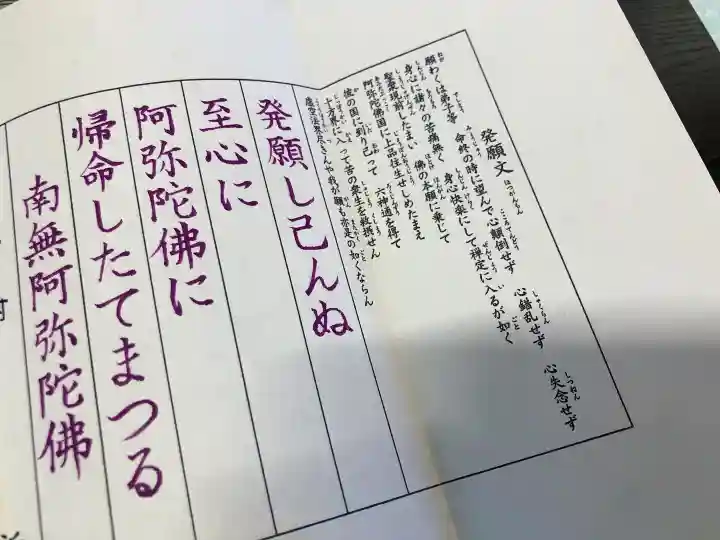 発願文 はつがんもん
願わくは弟子等 命終の時に望んで心顛倒せず 心錯乱せず 心失念せず
身心に諸々の苦痛無く 身心快楽にして禅定に入るが如く
聖衆現前したまい 佛の本願に乗じて
阿弥陀佛国に上品往生せしめたまえ
彼の国に到り已って 六神通を得て
十方界に入って苦の衆生を救摂せん
虚空法界尽きんや我が願も亦是の如くならん
発願し已んぬ
至心に
阿弥陀佛に
帰命したてまつる
南無阿弥陀佛